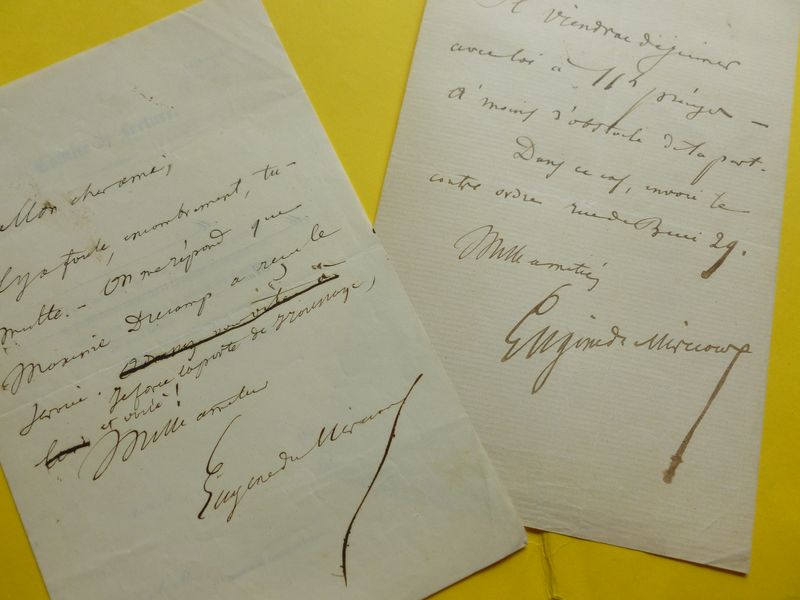 Mon cher ami,
Il y a foule, encombrement, tu-
multe. — On me répond que
Maxime Ducamp a reçu le
service.
Je force la porte de
et voilà!
Mille amitiés
Eugène de Mirecourt
Il viendra déjeuner
avec toi à 11h précises —
à moins d'obstacle de ta part.
Dans ce cas, envoie le
contre ordre rue de Buci 29.
Mille amitiés
Eugène de Mirecourt